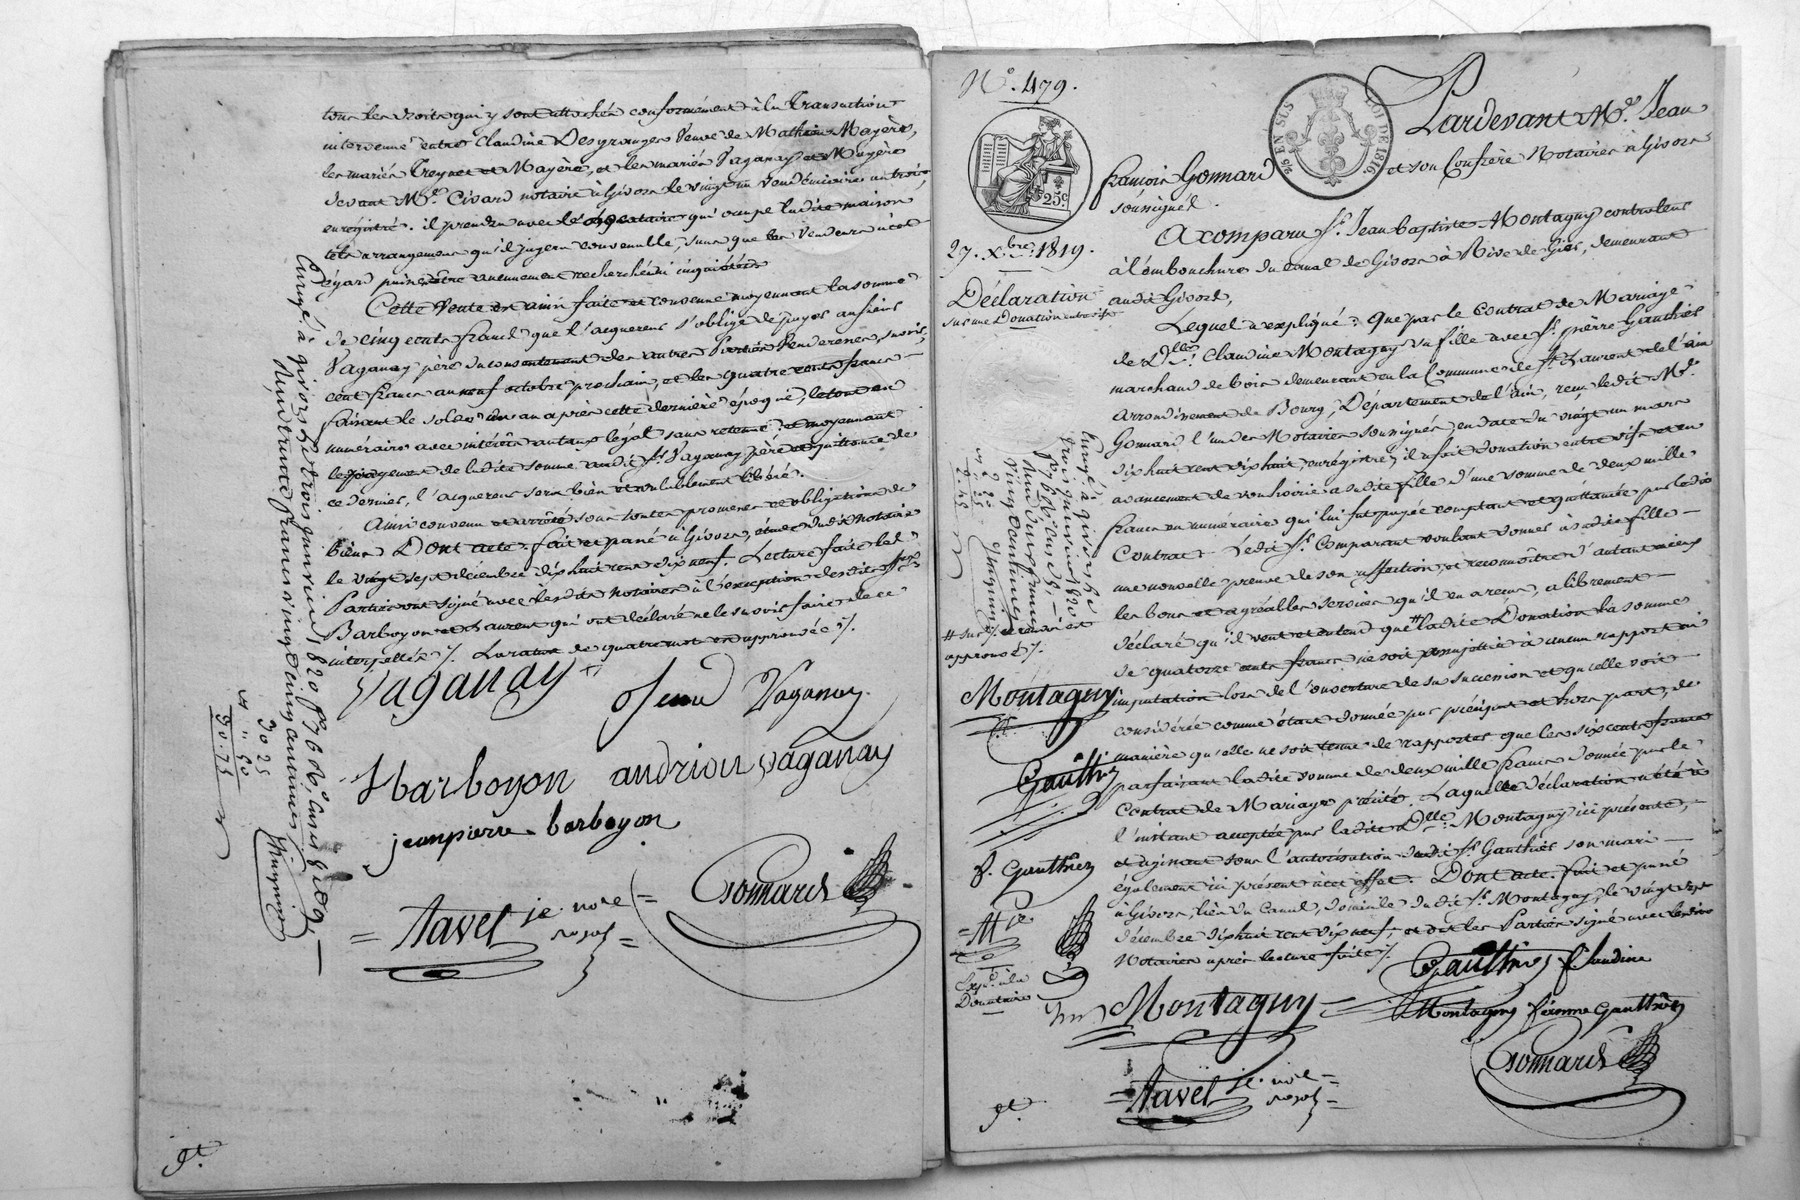 tous les droits qui y sont attachés conformément à la Transaction
intervenue entre Claudine Desgranges Veuve de Mathieu Mayère,
les mariés Freynet et Mayère, et les mariés Vaganay et Mayère
devant Me. Civard notaire à Givors le vingt un vendémiaire an trois,
enrégistré. il prendra avec le locataire qui occupe ladite maison
tels arrangemens qu'il jugera convenable, sans que les Vendeurs à cet
égard puissent être aucunement recherchés ni inquiétés
Cette Vente est ainsi faite et convenue moyennant la somme
de cinq cents francs que l'acquereur s'oblige de payer au sieur
Vaganay père du consentement des autres Parties Venderesses, savoir;
cent francs au neuf octobre prochain, et les quatre cents francs
faisant le solde un an après cette dernière époque, le tout en
numéraire avec intérêts au taux légal sans retenue: et moyennant
le payement de ladite somme audit Sr. Vaganay père et quittance de
ce dernier, l'acquereur sera bien et valablement libéré.
Ainsi convenu et arrêté sous toutes promesses et obligations de
biens Dont acte. fait et passé à Givors, étude dudit notaire
le vingt sept décembre dix huit cent dix neuf. Lecture faite les
Parties ont signé avec lesdits Notaires à l'exception desdits
Barboyon et Laurent qui ont déclaré ne le savoir faire de ce
interpellés ./. La rature de quatre mots est approuvée ./.
Vaganay
Vaganay
Barboyon andriou vaganay
jean pierre barboyon
Tavel je. nore
royal
Gonnard
Enregé à givors le trois janvier 1820 fo. 76
Reçu trente francs vingt cinq centimes
30 25
30.75
N°. 479.
25c.
27. Xbre. 1819.
Déclaration
sur une Donation entre vifs
25 EN SUS
LOI DE 1816
Pardevant Me. Jean
françois Gonnard et son Confrère Notaires à Givors
soussignés.
A comparu Sr. Jean baptiste Montagny controleur
à l'embouchure du canal de Givors à Rive de Gier, demeurant
audit Givors,
Lequel a expliqué: Que par le Contrat de Mariage
de Dlle. Claudine Montagny sa fille avec Sr. pierre Gauthier
marchand de bois demeurant en la Commune de St. Laurent de l'ain
arrondissement de Bourg, Département de l'ain, reçu ledit Me.
Gonnard l'un des Notaires soussignés, en date du vingt un mars
dix huit cent dix huit, enrégistré, il a fait donation entre vifs et en
avancement de son hoirie a sadite fille d'une somme de deux mille
francs en numéraire qui lui fut payée comptant et quittancée par ledit
Contrat. Ledit Sr. Comparant voulant donner à sadite fille
une nouvelle preuve de son affection et reconnoître d'autant mieux
les bons et agréables services qu'il en a reçus, a librement
déclaré qu'il veut et entend que # ladite Donation la somme
de quatorze cents francs ne soit assujettie à aucun rapport ni
imputation lors de l'ouverture de sa succession et qu'elle soit
considérée comme étant donnée par préciput et hors part, de
manière qu'elle ne soit tenue de rapporter que les six cents francs
parfaisant ladite somme de deux mille francs donnée par le
Contrat de Mariage précité. Laquelle déclaration a été à
l'instant acceptée par ladite Dlle. Montagny ici présente,
et agissant sous l'autorisation dudit Sr. Gauthier son mari
également ici présent à cet effet. Dont acte. fait et passé
à Givors, lieu du Canal, domicile dudit Sr. Montagny, le vingt sept
décembre dix huit cent dix neuf; et ont les Parties signé avec lesdits
Notaires après lecture faite ./.
Enregé à givors le
trois janvier 1820
Reçu deux francs
vingt centimes
2 20
2.42
# sur
approuvé ./.
Montagny
Gauthier
f. Gauthier
Expd. à la
Donataire
Gauthier Claudine
Montagny
Montagny femme Gauthier
Tavel je. nore
royal
Gonnard